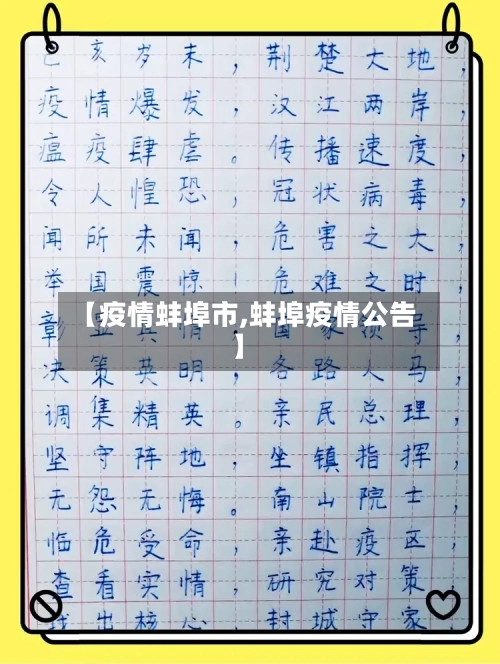 己亥岁末，荆楚大地，
疫情爆发，汉江两岸，
瘟疫肆虐。传播速度，
令人惶恐，冠状病毒，
闻所未闻，危害之大，
举国震惊！危难之时，
【疫情蚌埠市,蚌埠疫情公告
】
彰 情 国家 导，
决策英明，各路人马，
调集精英。亲民总理，
坚守阵地，坐镇指挥，
无怨无悔。南山院士，
临危受命，亲赴疫区，
查看实情，研究对策，
找出核心，封城守家，